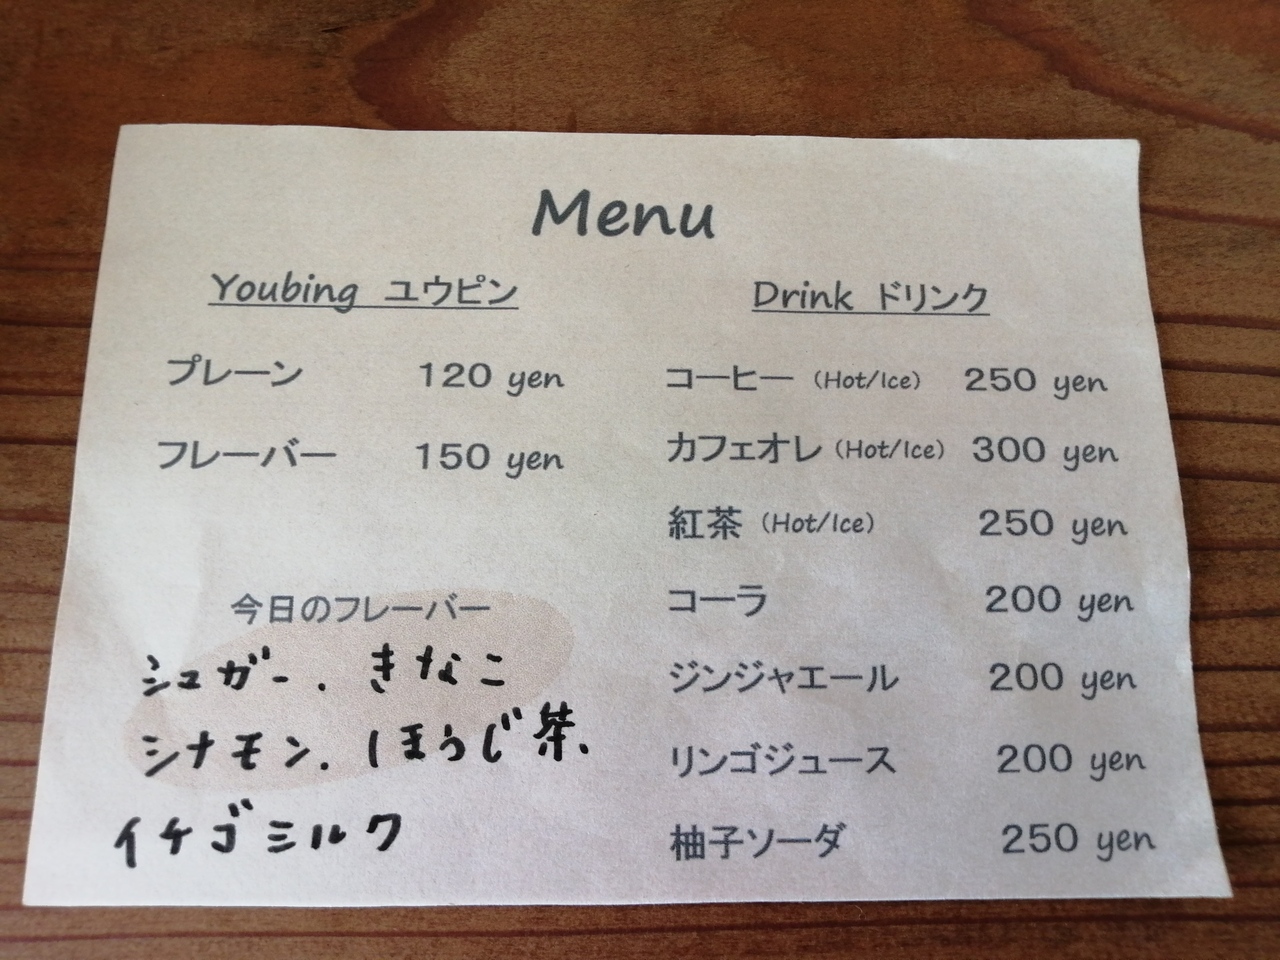 Menu
Youbing ユウピン
プレーン 120 yen
フレーバー 150 yen
今日のフレーバー
シュガー、きなこ
シナモン、ほうじ茶、
イチゴミルク
Drink ドリンク
コーヒー (Hot/Ice) 250 yen
カフェオレ (Hot/Ice) 300 yen
紅茶 (Hot/Ice) 250 yen
コーラ 200 yen
ジンジャエール 200 yen
リンゴジュース 200 yen
柚子ソーダ 250 yen